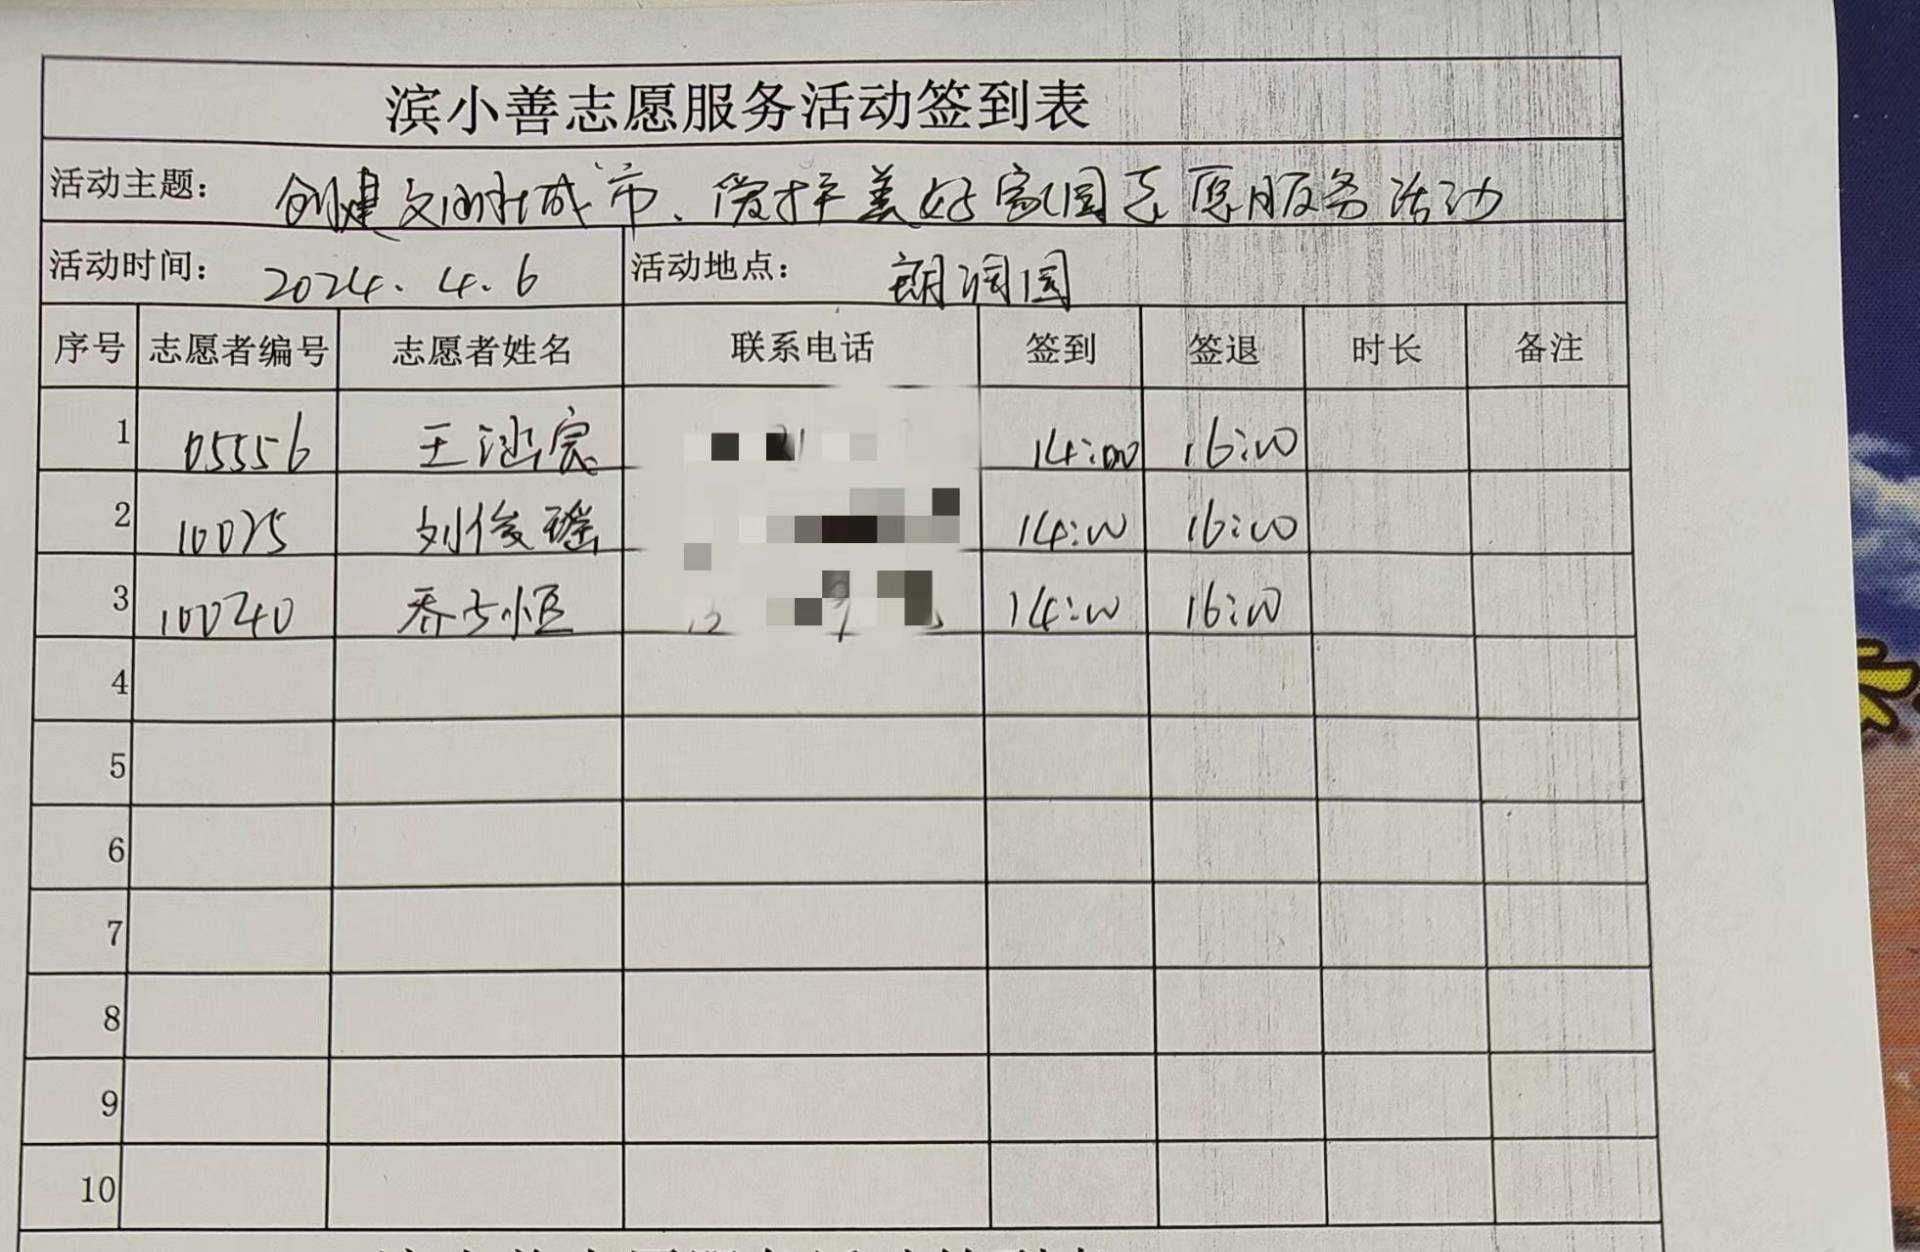 滨小善志愿服务活动签到表
活动主题： 创建文明城市、爱护美好家园志愿服务活动
活动时间： 2024.4.6 活动地点： 朗润园
序号 志愿者编号 志愿者姓名 联系电话 签到 签退 时长 备注
1 05556 王涵宸 14:00 16:00
2 10075 刘俊瑶 14:00 16:00
3 100740 乔 恒 14:00 16:00
4
5
6
7
8
9
10
滨小善志愿服务活动签到表